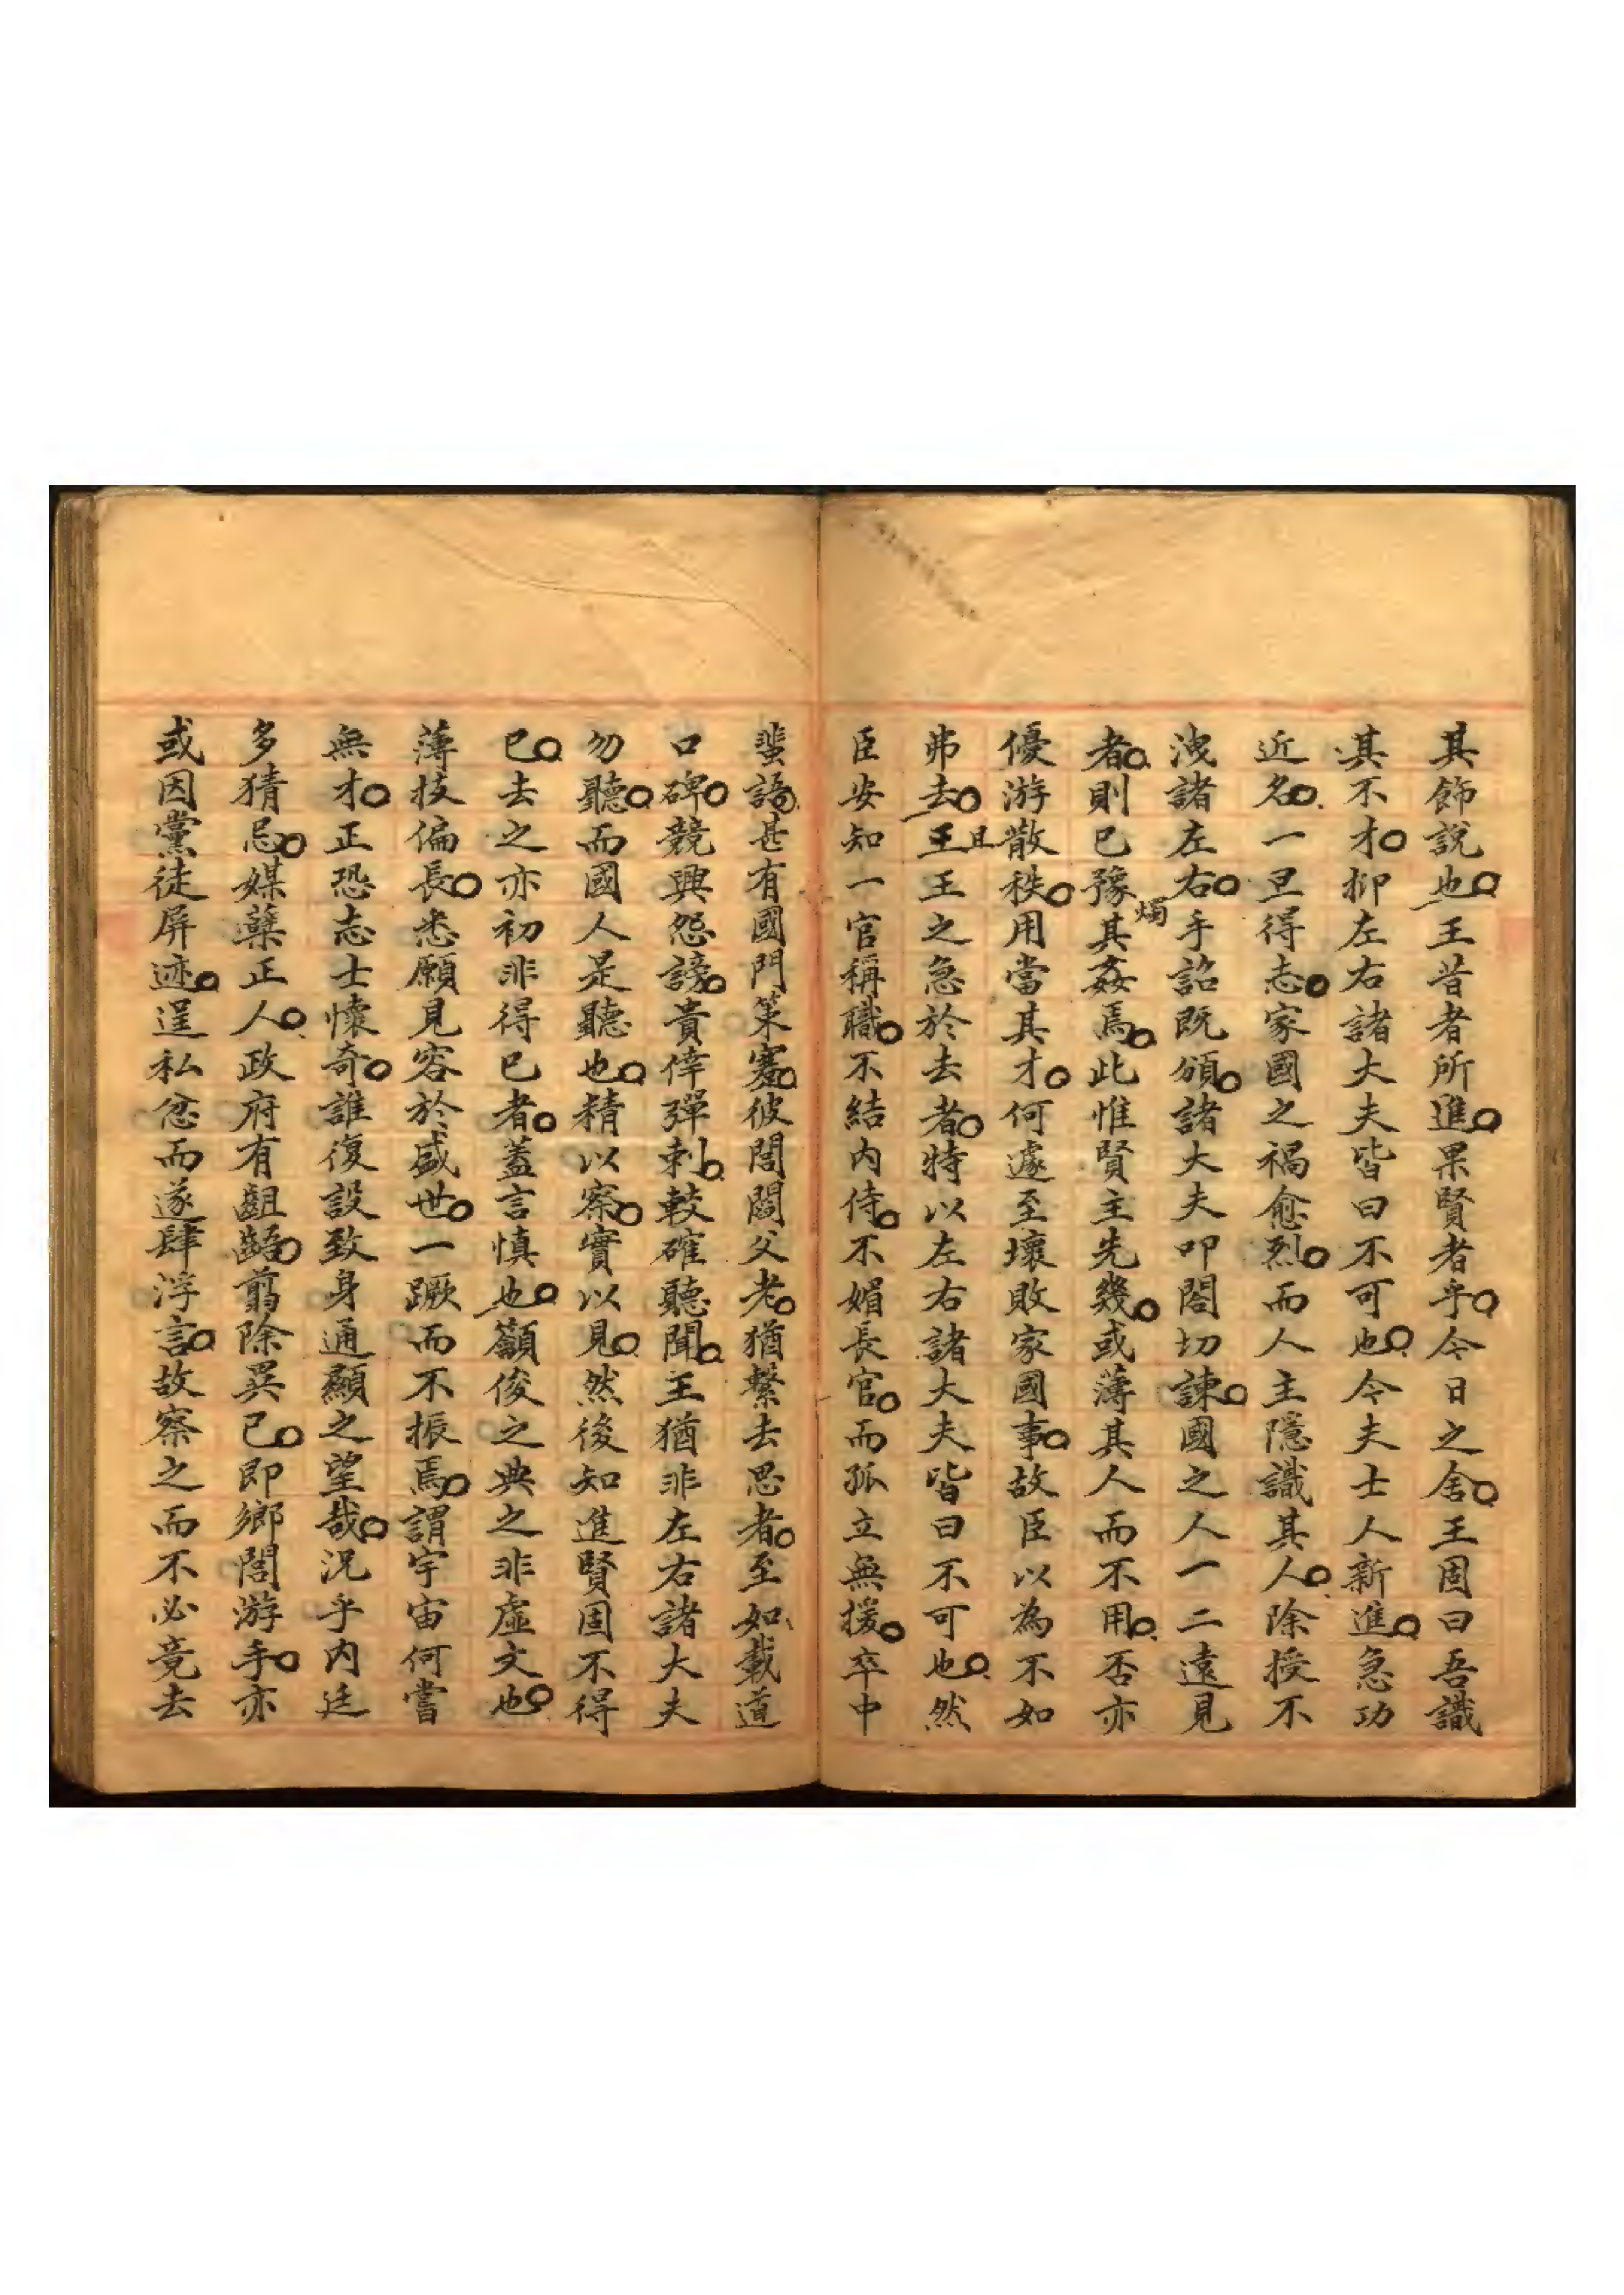 其飾說也王昔者所進果賢者乎今日之舍王固曰吾識
其不才抑左右諸大夫皆曰不可也今夫士人新進急功
近名一旦得志家國之禍愈烈而人主隱識其人除授不
洩諸左右手詔既頒諸大夫叩閤切諫國之人一二遠見
者則已豫燭其姦焉此惟賢主先幾或薄其人而不用否亦
優游散秩用當其才何遽至壞敗家國事故臣以為不如
弗去王且王之急於去者特以左右諸大夫皆曰不可也然
臣安知一官稱職不結內侍不媚長官而孤立無援卒中
蜚語甚有國門策蹇彼閭閻父老猶繫去思者至如載道
口碑競興怨謗貴倖彈刺較確聽聞王猶非左右諸大夫
勿聽而國人是聽也精以察實以見然後知進賢固不得
已去之亦初非得已者蓋言慎也籲俊之典之非虛文也
薄技偏長悉願見容於盛世一蹶而不振焉謂宇宙何嘗
無才正恐志士懷奇誰復設致身通顯之望哉況乎內廷
多猜忌媒糵正人政府有齟齬翦除異己即鄉閭游手亦
或因黨徒屏迹逞私忿而遂肆浮言故察之而不必竟去